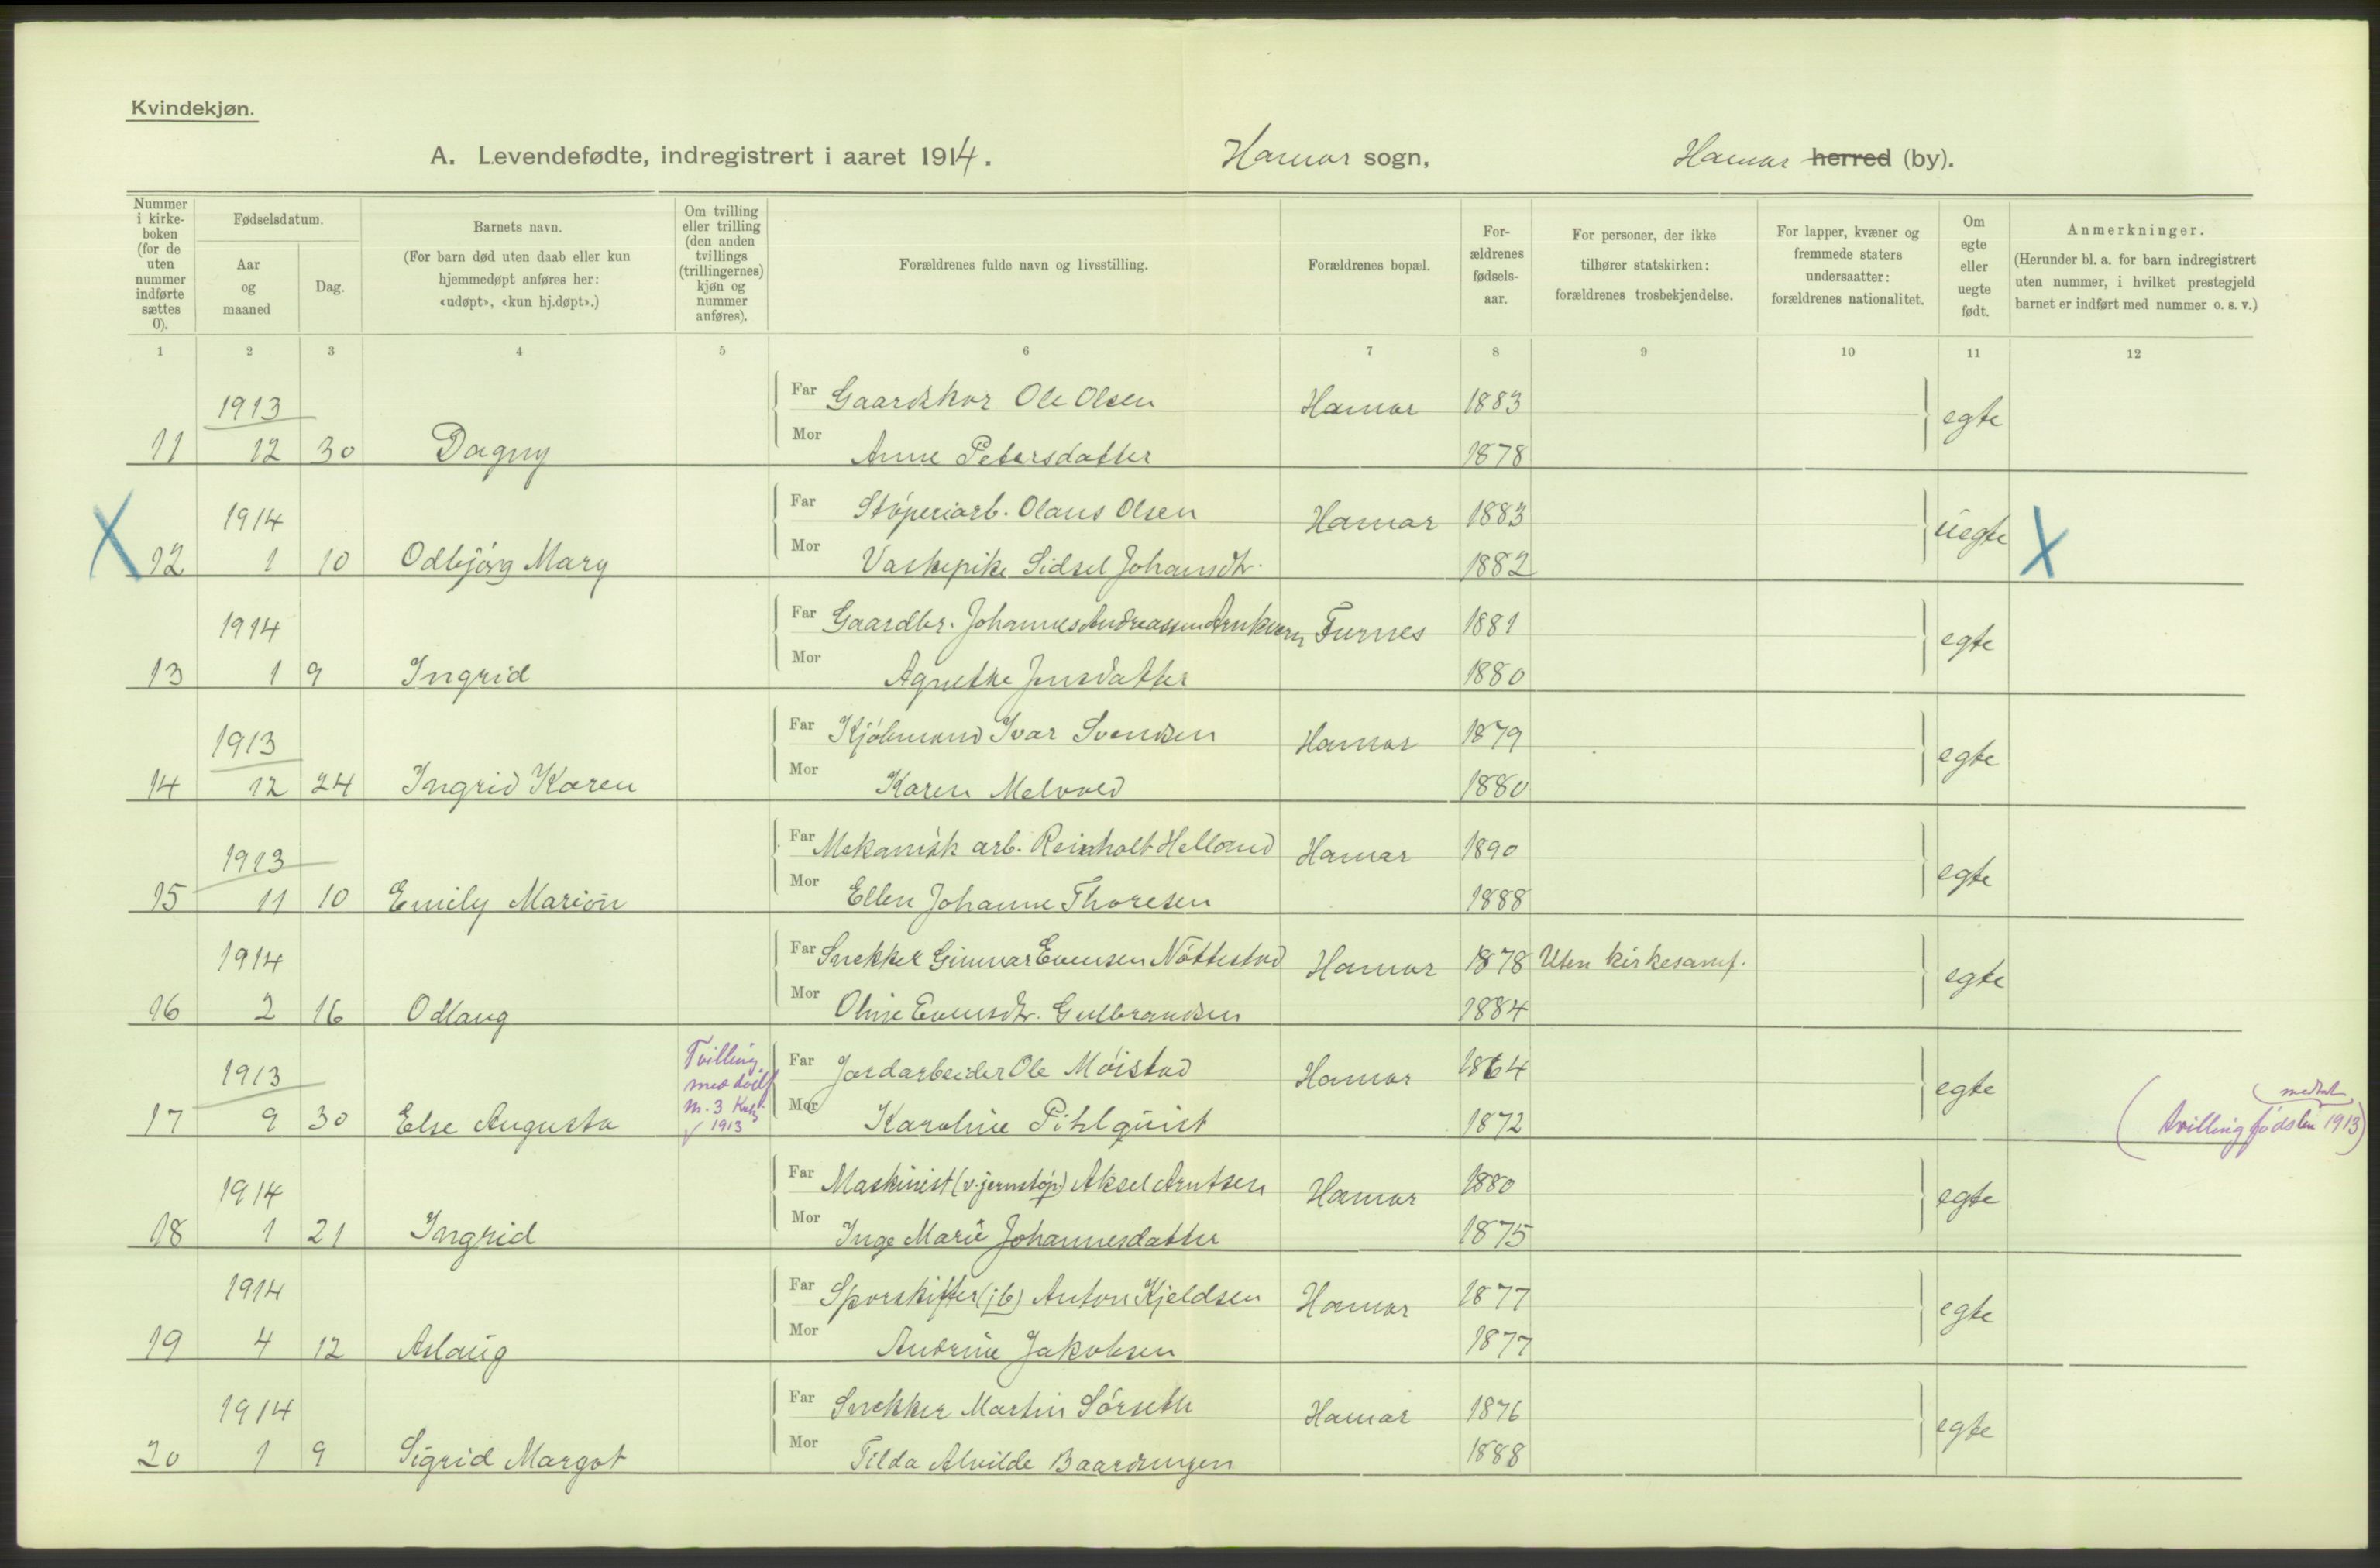 Kvindekjøn.
A. Levendefødte, indregistrert i aaret 1914. Hamar sogn, Hamar herred (by).
Nummer i kirke-boken (for de uten nummer indførte sættes 0).
Fødselsdatum.
Aar og maaned
Dag.
Barnets navn.
(For barn død uten daab eller kun hjemmedøpt anføres her: «udøpt», «kun hj.døpt».)
Om tvilling eller trilling (den anden tvillings (trillingernes) kjøn og nummer anføres).
Forældrenes fulde navn og livsstilling.
Forældrenes bopæl.
For-ældrenes fødsels-aar.
For personer, der ikke tilhører statskirken: forældrenes trosbekjendelse.
For lapper, kvæner og fremmede staters undersaatter: forældrenes nationalitet.
Om egte eller uegte født.
Anmerkninger.
(Herunder bl. a. for barn indregistrert uten nummer, i hvilket prestegjeld barnet er indført med nummer o. s. v.)
1 2 3 4 5 6 7 8 9 10 11 12
1913 Far Gaardskar Ole Olsen Hamar 1883 egte
11 12 30 Dagny Mor Anne Petersdatter 1878
1914 Far Støperiarb. Olaus Olsen Hamar 1883 uegte X
X 12 1 10 Odbjørg Mary Mor Vaskepike Sidsel Johansdtr. 1882
1914 Far Gaardbr. Johannes Andreassen Arnkværn Furnes 1881 egte
13 1 9 Ingrid Mor Agnethe Jensdatter 1880
1913 Far Kjøbmand Ivar Svendsen Hamar 1879 egte
14 12 24 Ingrid Karen Mor Karen Melvold 1880
1913 Far Mekanisk arb. Reinholt Helland Hamar 1890 egte
15 11 10 Emily Marion Mor Ellen Johanne Thoresen 1888
1914 Far Snekker Gunnar Evensen Nøttestad Hamar 1878 Uten kirkesamf. egte
16 2 16 Odlaug Mor Oline Evensdtr. Gulbrandsen 1884
1913 Tvilling med dødf. m. 3 1913 Far Jordarbeider Ole Møistad Hamar 1864 egte
17 9 30 Else Augusta Mor Karoline Pihlquist 1872 (tvillingfødslen 1913)
1914 Far Maskinist (v. jernstøp.) Aksel Arntsen Hamar 1880 egte
18 1 21 Ingrid Mor Inga Marie Johannesdatter 1875
1914 Far Sporskifter (jb) Anton Kjeldsen Hamar 1877 egte
19 4 12 Aslaug Mor Andrine Jakobsen 1877
1914 Far Snekker Martin Sørseth Hamar 1876 egte
20 1 9 Sigrid Margot Mor Tilda Alvilde Baardsengen 1888